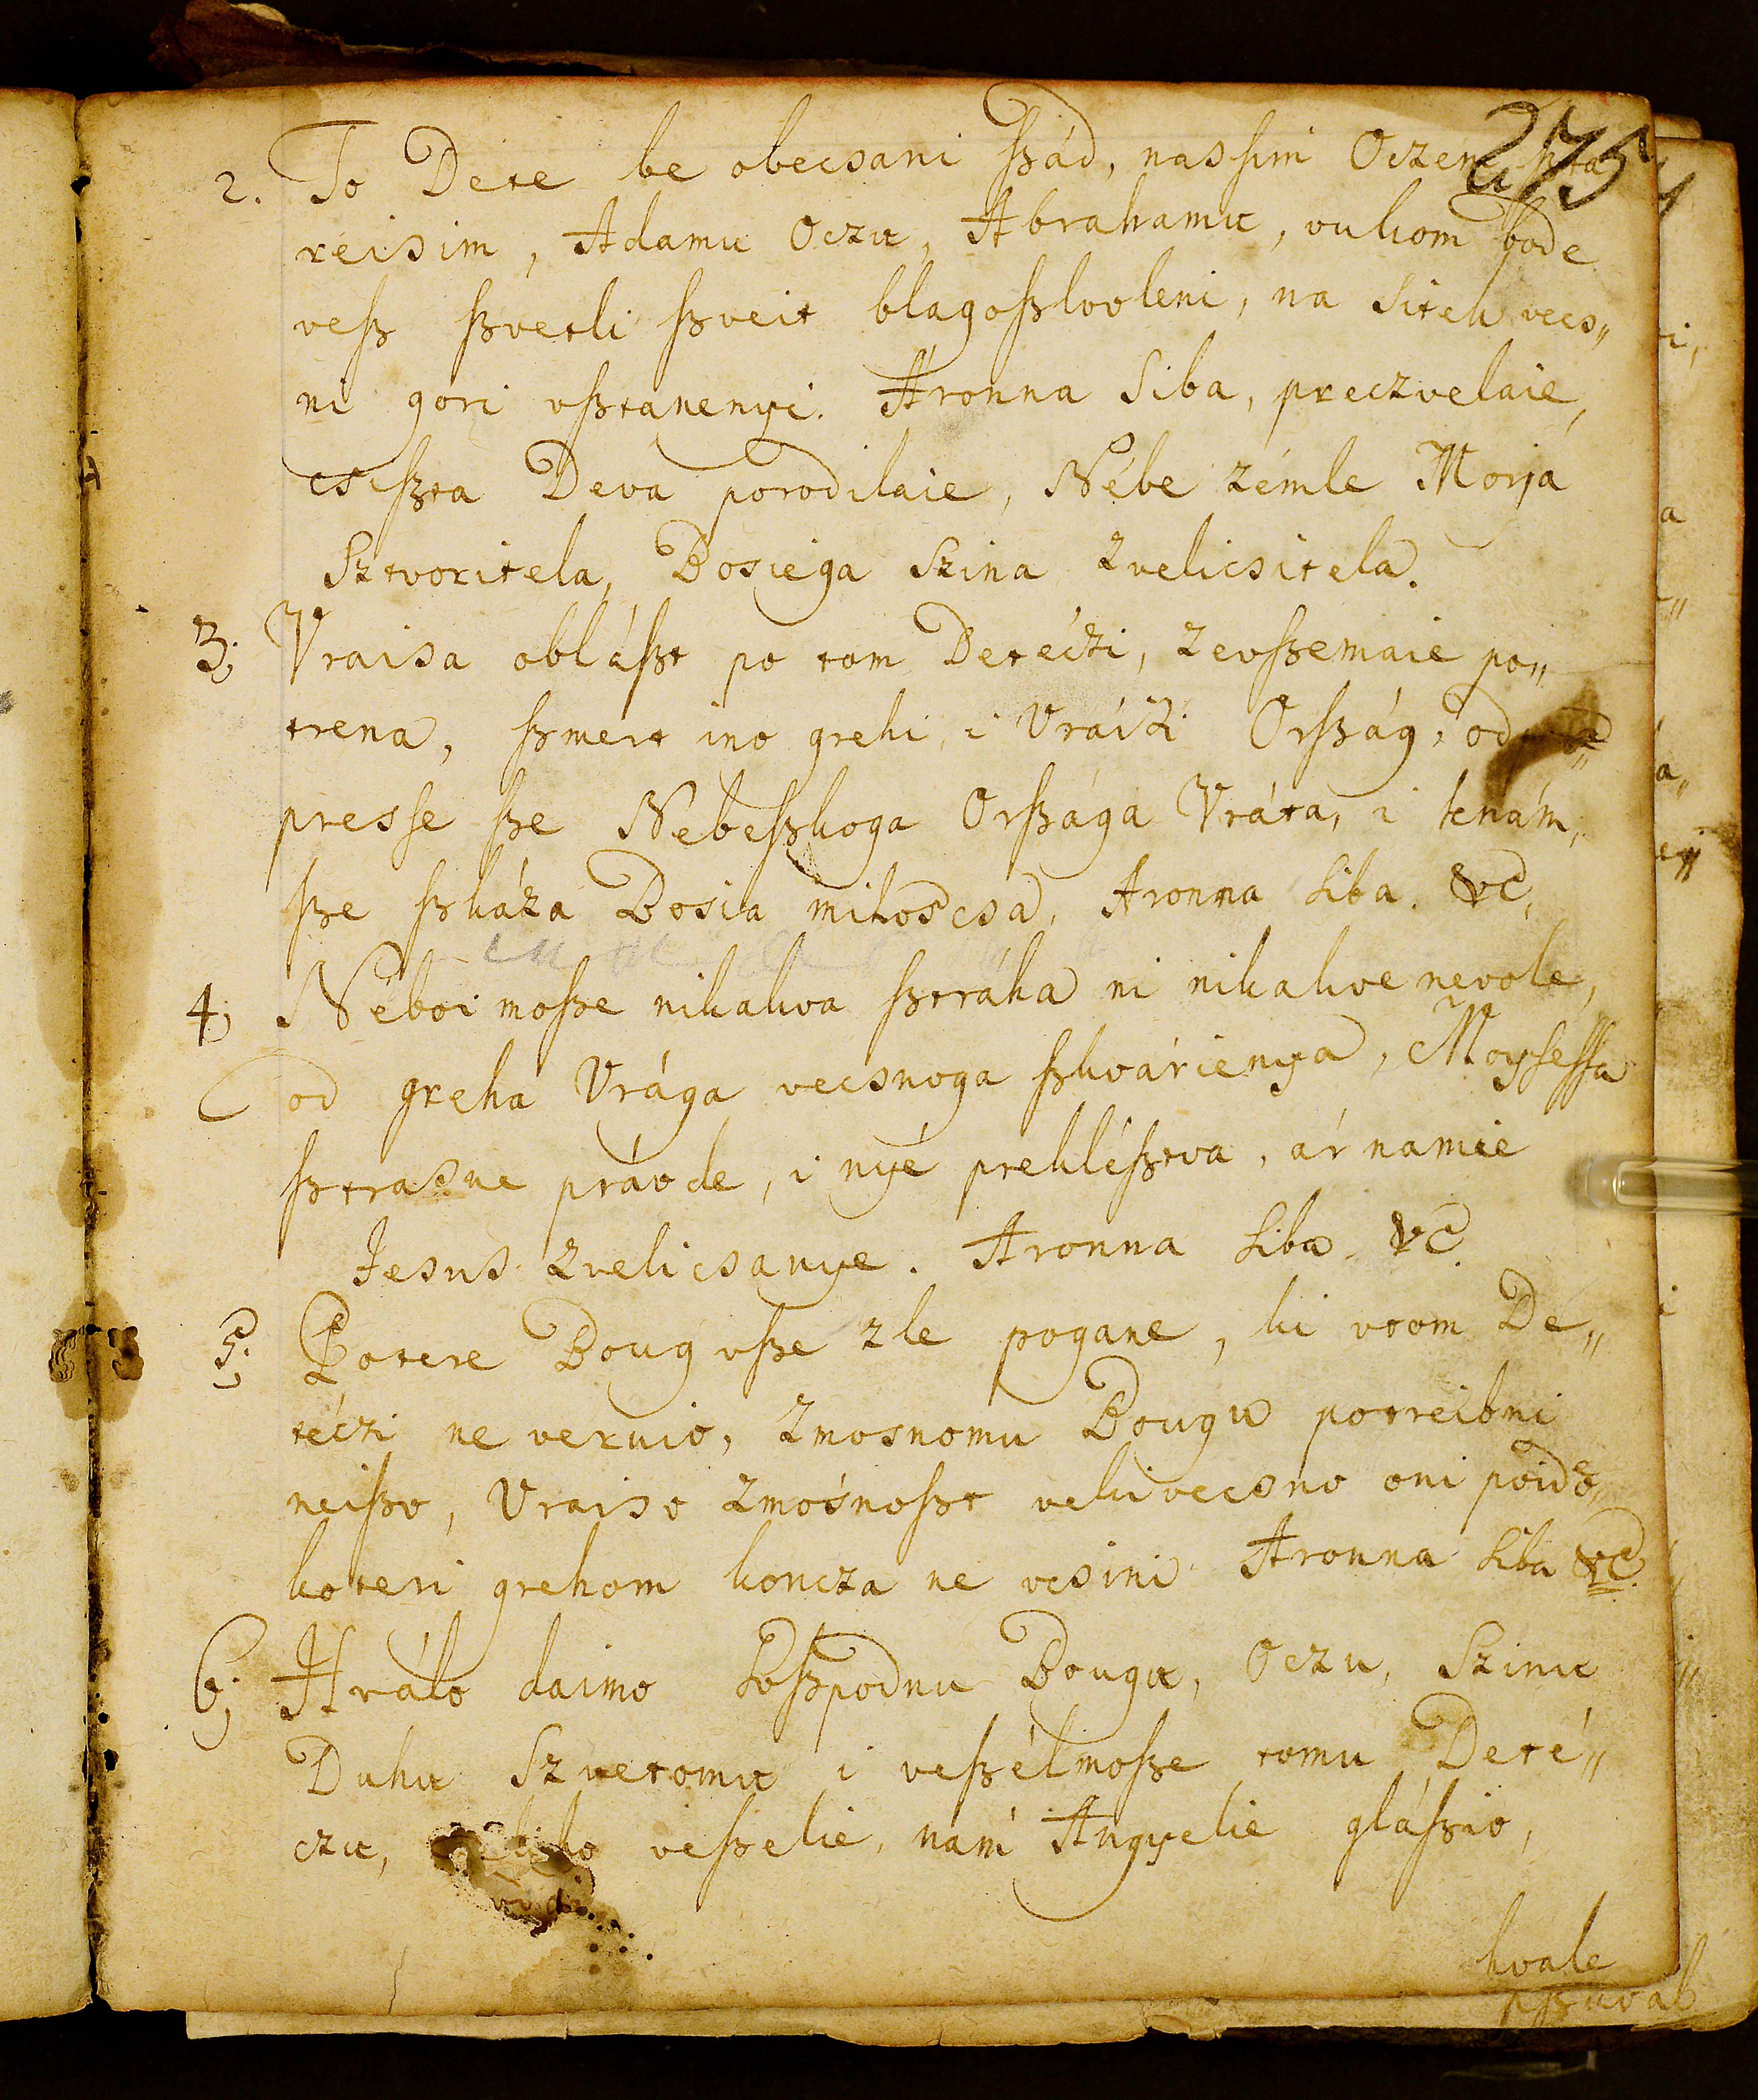 275
2. To Dete be obecsani ßád, nassim Oczem sta
reisim, Adamu Oczu, Abrahamu, vukom bode
veß ßvetli ßveit blagoßlovleni, na sitek vecs„
ni gori vßtanenyi. Aronna siba, preczvelaie,
csißta Deva porodilaie, Nébe zémle Morja
Sztvoritela, Bosiega Szina zvelicsitela.
3; Vraisa obláßt po tom Detéczi, zevßemaie po„
trena, ßmert ino grehi, i Vráisi Orßág, od
presse ße Nebeßkoga Orßága Vráta, i kenám,
ße ßkáza Bosia miloscsa, Aronna siba. &c,
4; Néboi moße nikakva ßtráha ni nikakve nevole,
od greha Vrága vecsnoga ßkvárienya, Moysessa
ßtrasne právde, i nyé prekléßtva, ár namie
Jesus zvelicsanye. Aronna siba &c.
5; Potere Boug vße zle pogane, ki vtom De„
téczi ne veruio, zmosnomu Bougu potreibni
neißo, Vraiso zmósnoßt vekivecsno oni poido,
koteri grehom koncza ne vcsini Aronna siba &c.
6; Hválo daimo Goßpodnu Bougu, Oczu, Szinu
Duhu Szvetomu i veßélmoße tomu Deté„
czu, veßelie, nám Angyelie gláßio,
hvale